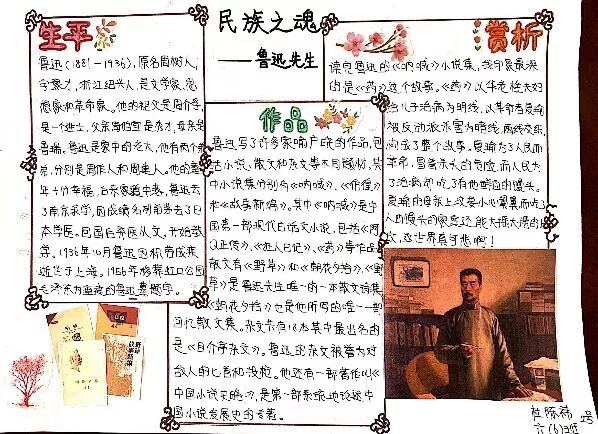 民族之魂
——鲁迅先生
生平
鲁迅(1881-1936),原名周树人,
字豫才,浙江绍兴人,是文学家,思
想家和革命家。他的祖父是周介孚,
是一个进士,父亲周伯宜是秀才,母亲是
鲁瑞。鲁迅是家中的老大,他有两个弟
弟,分别是周作人和周建人。他的童
年十分幸福,后来家道中衰,鲁迅去
了南京求学,因成绩名列前茅去了日
本学医。回国后弃医从文,开始教
学。1936年10月鲁迅因积劳成疾
逝世于上海。1956年移葬虹口公园
毛泽东为重建的鲁迅墓题字。
作品
鲁迅写了许多家喻户晓的作品,包
括小说,散文和杂文等不同题材,其
中小说集分别有《呐喊》、《彷徨》
和《故事新编》。其中《呐喊》是中
国第一部现代白话文小说,包括《阿
Q正传》、《狂人日记》、《药》等作品
散文有《野草》和《朝花夕拾》,《野
草》是鲁迅先生唯一的一本散文诗集
《朝花夕拾》也是他所写的唯一一部
回忆散文集。杂文共有16本其中最出名的
是《且介亭杂文》。鲁迅的杂文被誉为对
敌人的匕首和投枪。他还有一部著作叫《
中国小说史略》,是第一部系统地论述中
国小说发展史的专著。
赏析
读完鲁迅的《呐喊》小说集,我印象最深
的是《药》这个故事。《药》以华老栓夫妇
给儿子治病为明线,以革命者夏瑜
被反动派杀害为暗线,两线交织
构成了整个故事。夏瑜为了人民而
革命,冒着杀头的危险,而人民为
了治病却吃了有他鲜血的馒头。
夏瑜的母亲上坟要小心翼翼,而吃
人血馒头的家庭还能大摇大摆的
,这世界真可悲啊!
六(6)班